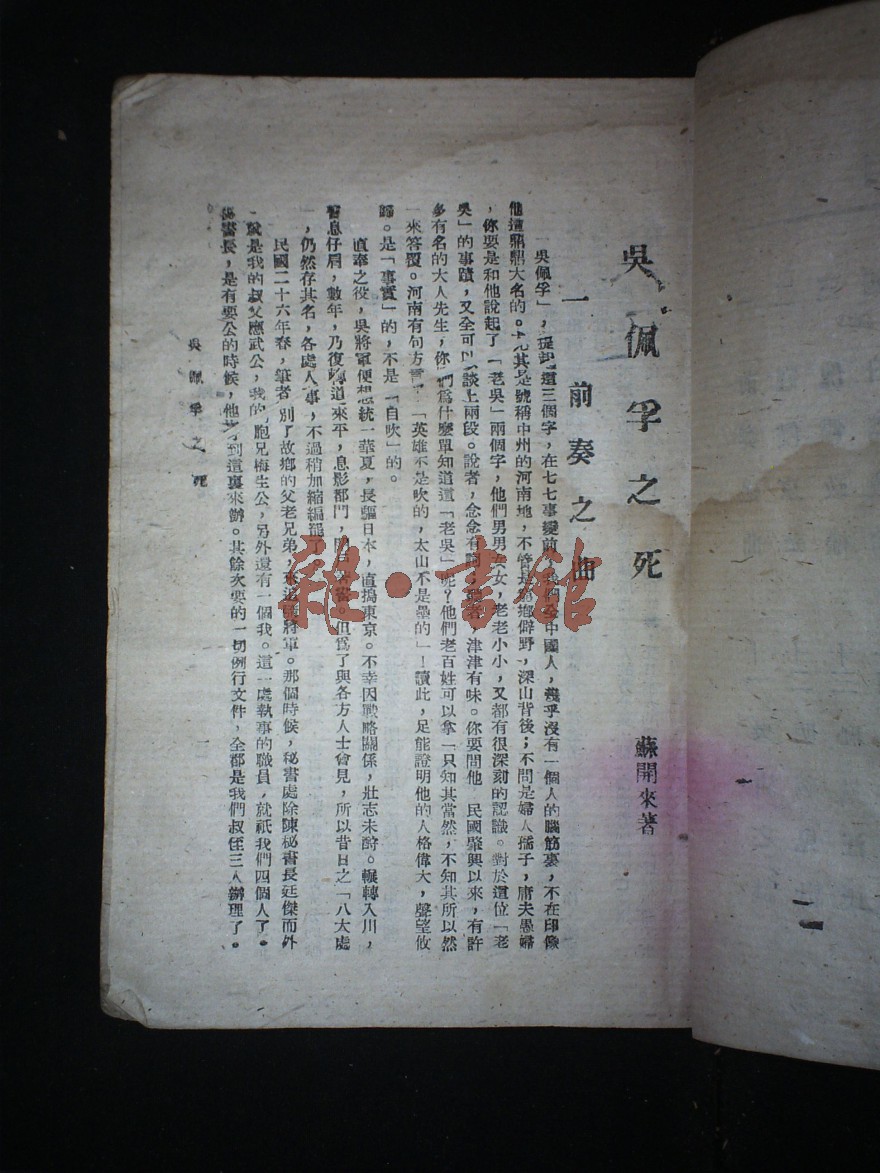 吳佩孚之死
蘇開來著
一 前奏之曲
「吳佩孚」，提起這三個字，在七七事變前，我們全中國人，幾乎沒有一個人的腦筋裏，不在印像
他這鼎鼎大名的。尤其是號稱中州的河南地，不管是鄉僻野，深山背後；不問是婦人孺子，庸夫愚婦
，你要是和他說起了「老吳」兩個字，他們男男女女，老老小小，又都有很深刻的認識。對於這位「老
吳」的事蹟，又全可以談上兩段。說者，念念有詞，聽者，津津有味。你要問他 民國聚興以來，有許
多有名的大人先生，你們爲什麼單知道這「老吳」呢？他們老百姓可以拿「只知其當然，不知其所以然
」來答覆。河南有句方言：「英雄不是吹的，太山不是壘的」！讀此，足能證明他的人格偉大，聲望攸
歸。是「事實」的，不是「自吹」的。
直奉之役，吳將軍便想統一華夏，長驅日本，直搗東京。不幸因戰略關係，壯志未酬。輾轉入川，
暫息仔肩，數年，乃復轉道來平，息影都門，閉戶 。但爲了與各方人士會見，所以昔日之「八大處
」，仍然存其名，各處人事，不過稍加縮編罷了。
民國二十六年春，筆者 別了故鄉的父老兄弟，來追隨將軍。那個時候，秘書處除陳秘書長廷傑而外
，就是我的叔父應武公，我的胞兄梅生公，另外還有一個我。這一處執事的職員，就祇我們四個人了。
秘書長，是有要公的時候，他才到這裏來辦。其餘次要的一切例行文件，全都是我們叔侄三人辦理了。
吳佩孚之死
一
雜·書館
二